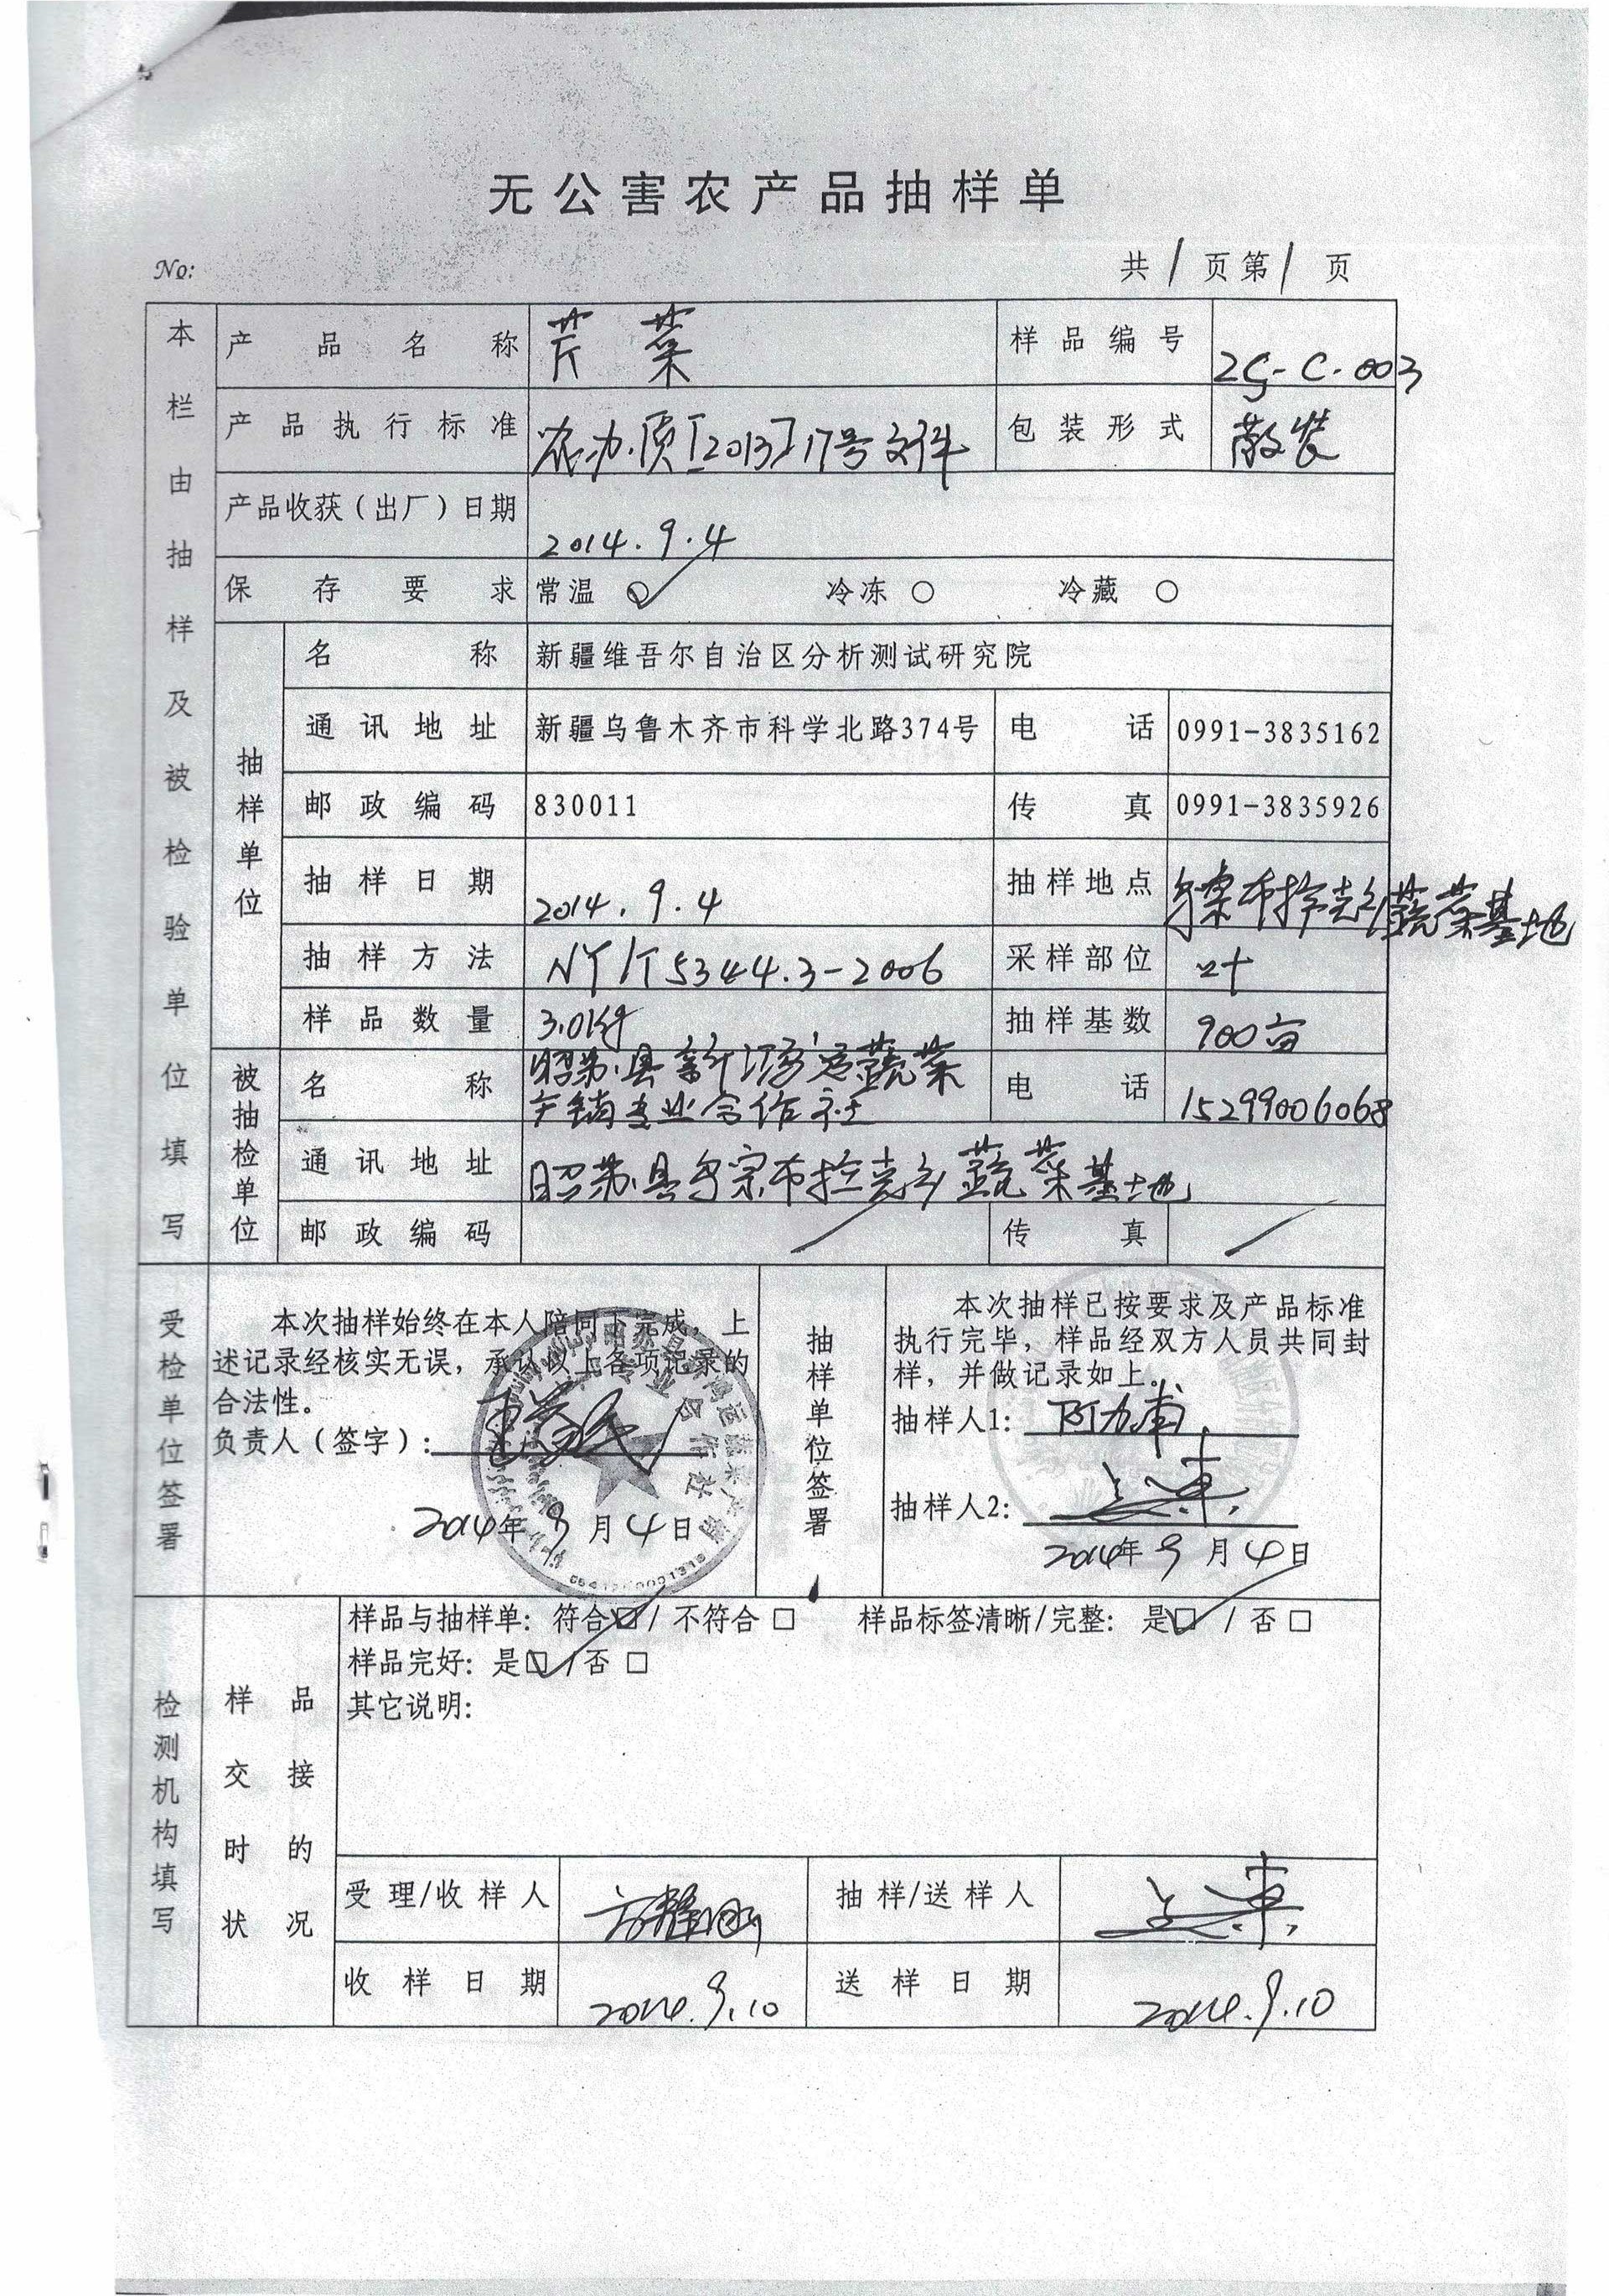 无公害农产品抽样单
No:
共 1 页第 1 页
本栏由抽样及被检验单位填写
产品名称 芹菜 样品编号 ZG-C-003
产品执行标准 农办质[2013]17号文件 包装形式 散装
产品收获(出厂)日期 2014.9.4
保存要求 常温 ○ 冷冻 ○ 冷藏 ○
抽样单位
名称 新疆维吾尔自治区分析测试研究院
通讯地址 新疆乌鲁木齐市科学北路374号 电话 0991-3835162
邮政编码 830011 传真 0991-3835926
抽样日期 2014.9.4 抽样地点 乌宗布拉克乡蔬菜基地
抽样方法 NY/T5344.3-2006 采样部位 叶
样品数量 3.0kg 抽样基数 900亩
被抽检单位
名称 昭苏县新鸿运蔬菜
产销专业合作社 电话 15299006068
通讯地址 昭苏县乌宗布拉克乡蔬菜基地
邮政编码 / 传真 /
受检单位签署
本次抽样始终在本人陪同下完成,上
述记录经核实无误,承认以上各项记录的
合法性。
负责人(签字):
2014年9月4日
抽样单位签署
本次抽样已按要求及产品标准
执行完毕,样品经双方人员共同封
样,并做记录如上。
抽样人1: 阿力甫
抽样人2:
2014年9月4日
检测机构填写
样品交接时的状况
样品与抽样单:符合□/不符合□ 样品标签清晰/完整:是□/否□
样品完好:是□/否□
其它说明:
受理/收样人 抽样/送样人
收样日期 2014.9.10 送样日期 2014.9.10